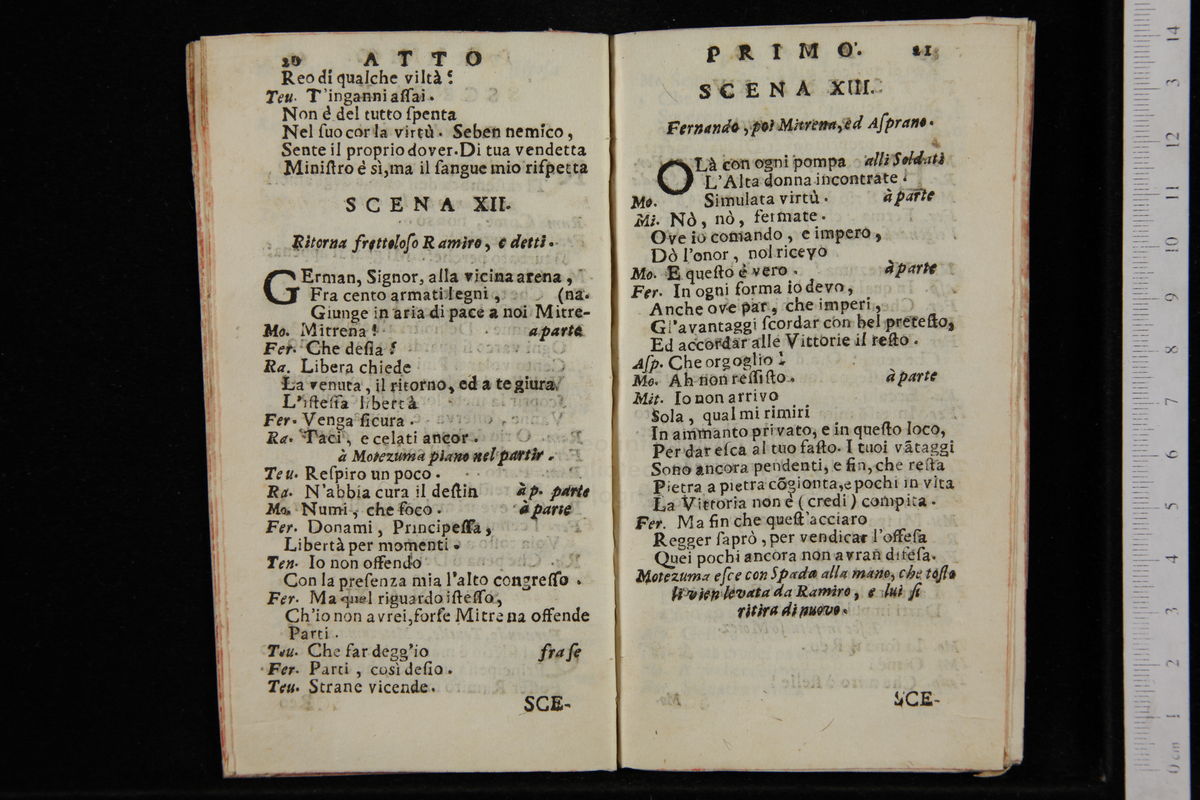 20 ATTO
Reo di qualche viltà?
Teu. T'inganni aſſai.
Non è del tutto ſpenta
Nel ſuo cor la virtù. Seben nemico,
Sente il proprio dover. Di tua vendetta
Miniſtro è sì, ma il ſangue mio riſpetta
SCENA XII.
Ritorna frettoloſo Ramiro, e detti.
GErman, Signor, alla vicina arena,
Fra cento armati legni, (na.
Giunge in aria di pace a noi Mitre-
Mo. Mitrena! a parte
Fer. Che deſia?
Ra. Libera chiede
La venuta, il ritorno, ed a te giura
L'iſteſſa libertà
Fer. Venga ſicura.
Ra. Taci, e celati ancor.
à Motezuma piano nel partir.
Teu. Reſpiro un poco.
Ra. N'abbia cura il deſtin à p. parte
Mo. Numi, che foco. à parte
Fer. Donami, Principeſſa,
Libertà per momenti.
Ten. Io non offendo
Con la preſenza mia l'alto congreſſo.
Fer. Ma quel riguardo iſteſſo,
Ch'io non avrei, forſe Mitrena offende
Parti.
Teu. Che far degg'io fra ſe
Fer. Parti, così deſio.
Teu. Strane vicende.
SCE-
PRIMO. 21
SCENA XIII.
Fernando, poi Mitrena, ed Aſprano.
OLà con ogni pompa alli Soldati
L'Alta donna incontrate.
Mo. Simulata virtù. à parte
Mi. Nò, nò, fermate.
Ove io comando, e impero,
Dò l'onor, nol ricevo
Mo. E queſto è vero. à parte
Fer. In ogni forma io devo,
Anche ove par, che imperi,
Gl'avantaggi ſcordar con bel preteſto,
Ed accordar alle Vittorie il reſto.
Aſp. Che orgoglio!
Mo. Ah non reſſiſto. à parte
Mit. Io non arrivo
Sola, qual mi rimiri
In ammanto privato, e in queſto loco,
Per dar eſca al tuo faſto. I tuoi vãtaggi
Sono ancora pendenti, e fin, che reſta
Pietra a pietra cõgionta, e pochi in vita
La Vittoria non è (credi) compita.
Fer. Ma fin che queſt'acciaro
Regger ſaprò, per vendicar l'offeſa
Quei pochi ancora non avran difeſa.
Motezuma eſce con Spada alla mano, che toſto
li vien levata da Ramiro, e lui ſi
ritira di nuovo.
SCE-